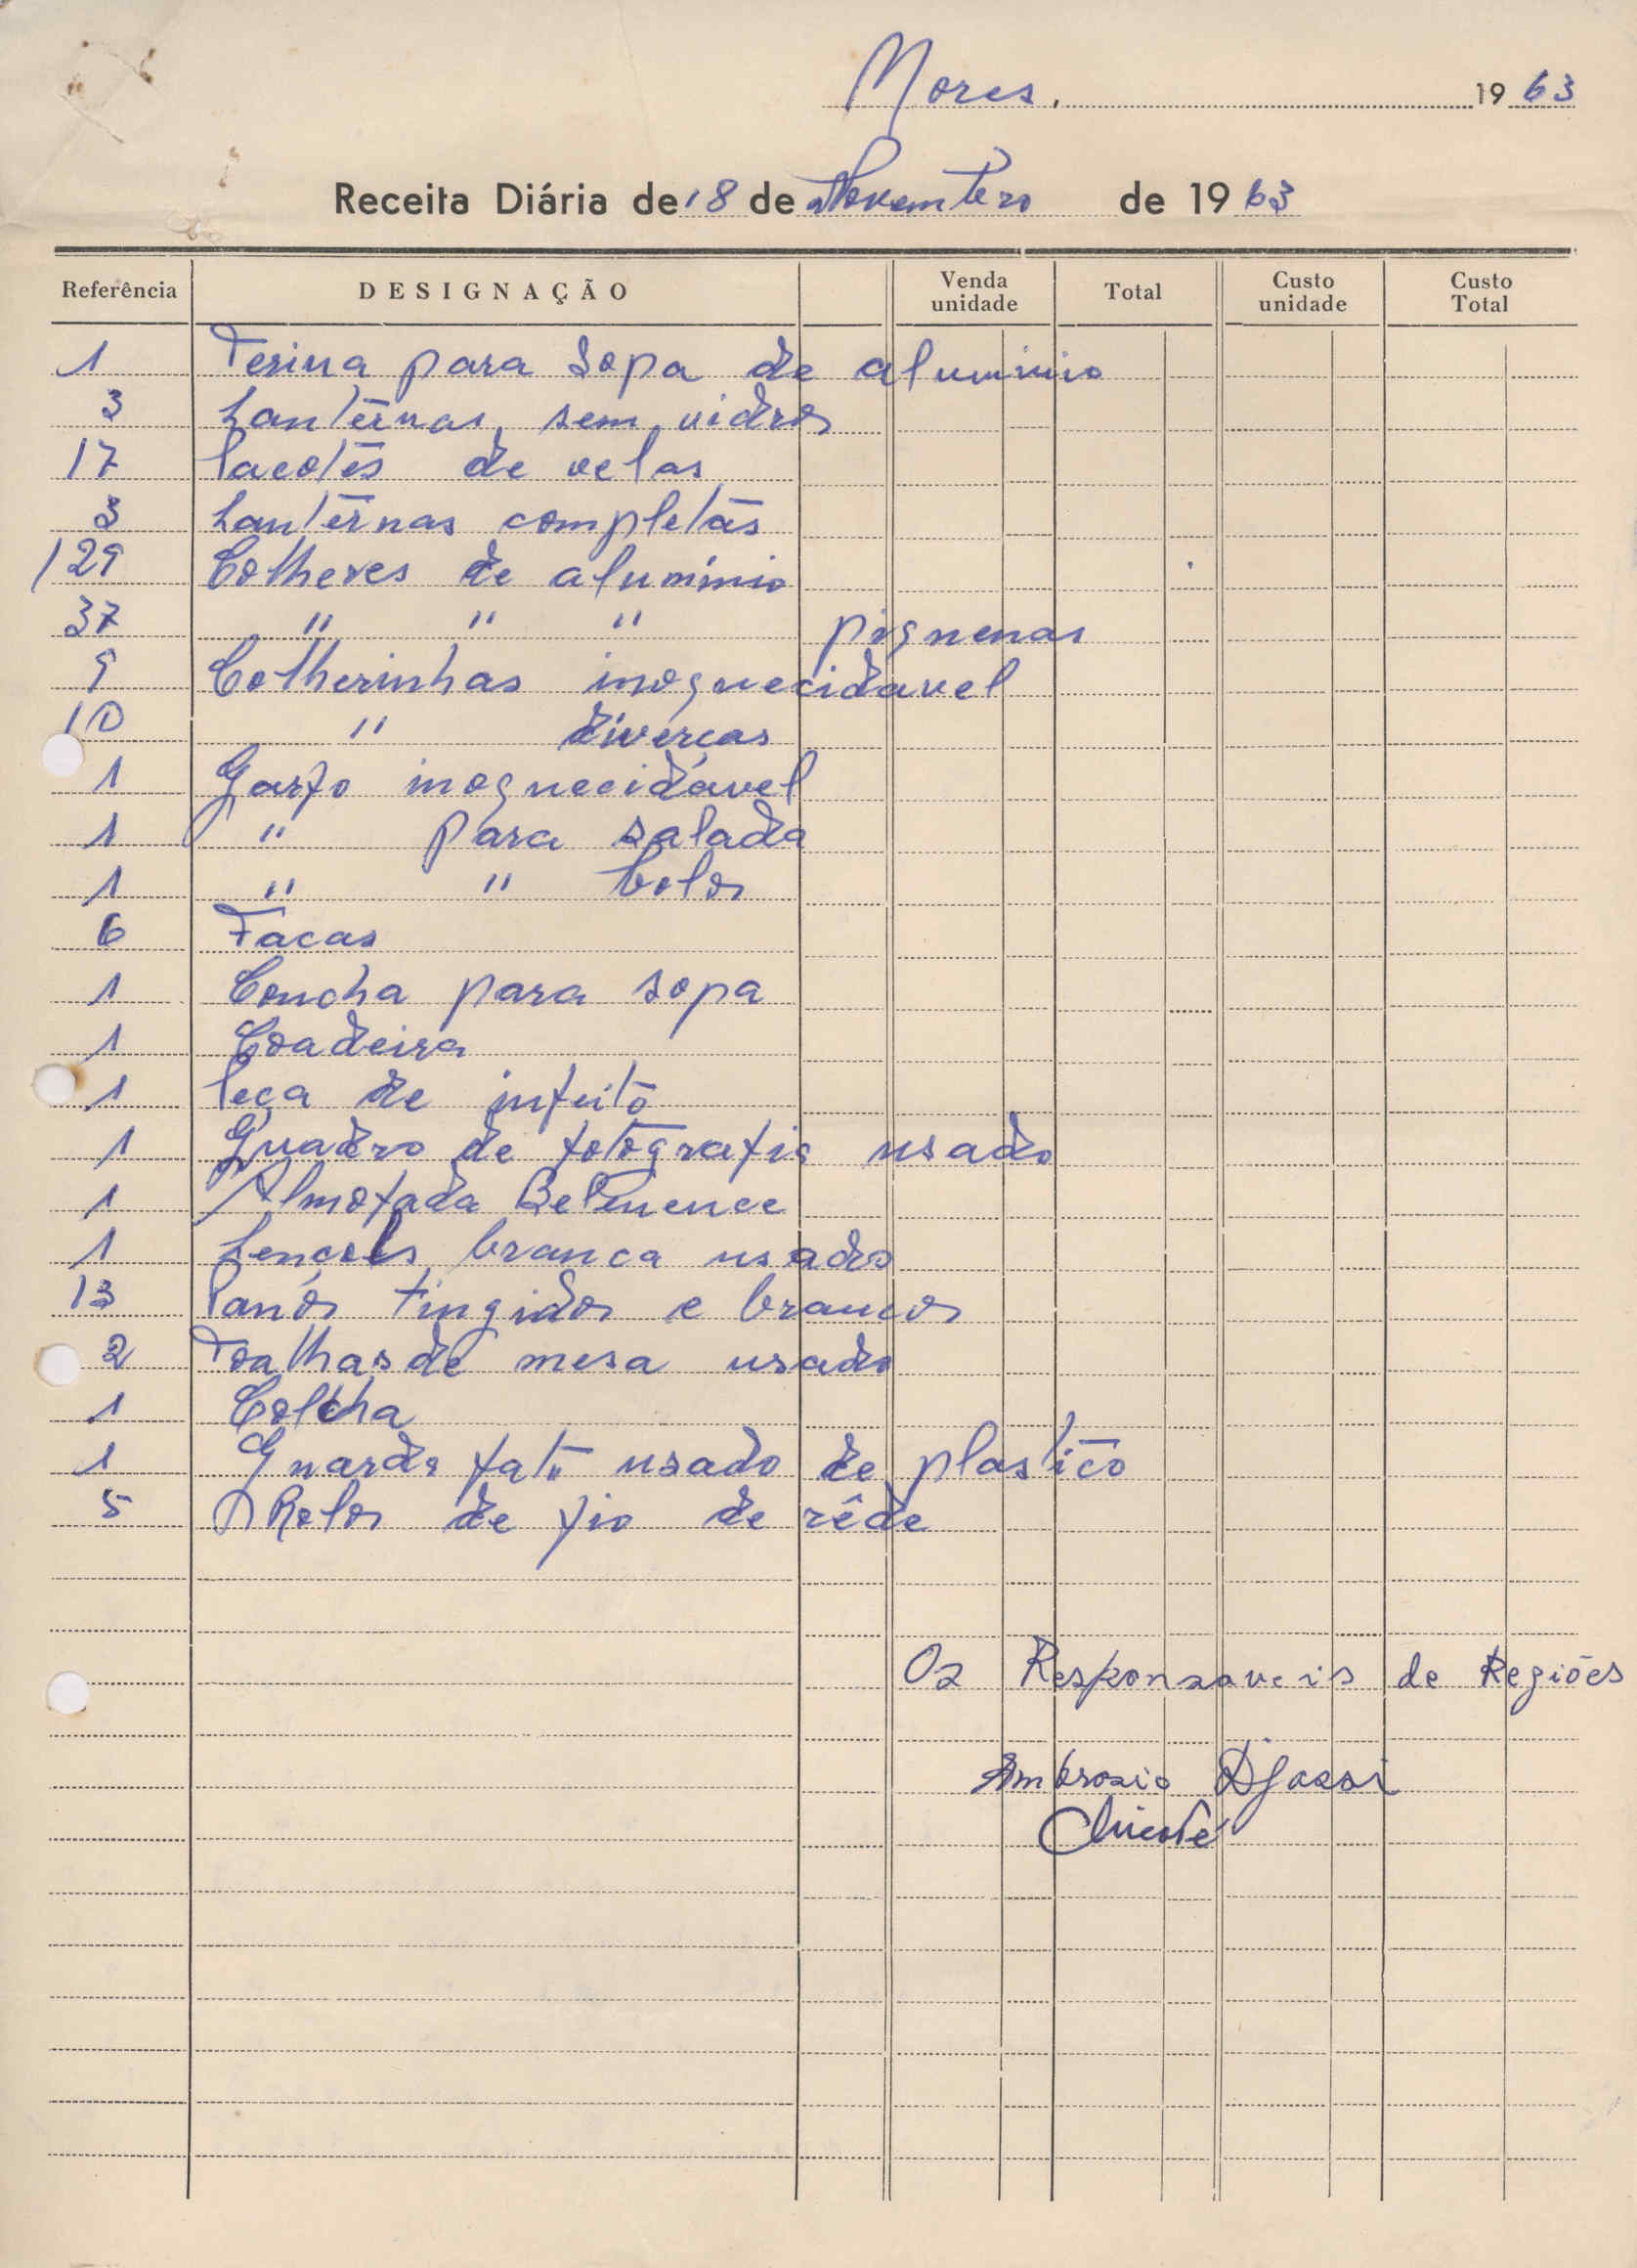 Mores, 1963
Receita Diária de 18 de Novembro de 1963
Referência DESIGNAÇÃO Venda unidade Total Custo unidade Custo Total
1 Terina para Sopa de aluminio
3 Lanternas, sem vidros
17 Pacotes de velas
3 Lanternas completas
129 Colheres de aluminio
37 " " " piquenas
9 Colherinhas inoquecidavel
10 " divercas
1 Garfo inoquecidavel
1 " para salada
1 " " bolos
6 Facas
1 Concha para sopa
1 Coadeira
1 Peça de infeito
1 Quadro de fotografia usado
1 Almofada Belenence
1 Lençols branca usado
13 Panos tingidos e brancos
2 Toalhas de mesa usado
1 Colcha
1 Guarda fato usado de plastico
5 Rolos de fio de rêde
Os Responsaveis de Regiões
Ambrosio Djassi